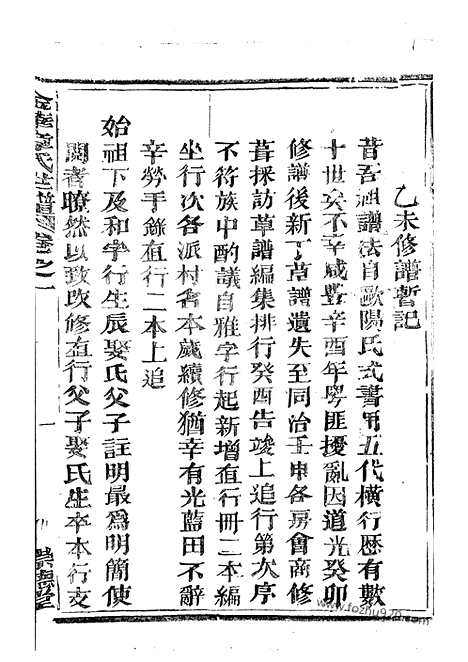 乙未修譜暫記
昔吾祖譜法自歐陽氏式書用五代橫行歷有數
十世矣不幸咸豐辛酉年粤匪擾亂因道光癸卯
修譜後新丁草譜遺失至同治壬申各房會商修
葺採訪草譜編集排行癸酉告竣上追行第次序
不符族中酌議自雅字行起新增直行冊二本編
坐行次各派村耆本歲續修猶幸有光藍田不辭
辛勞手錄直行二本上追
始祖下及和字行生辰娶氏父子註明最爲明簡使
閱者瞭然以致改修直行父子娶氏生卒本行支
章氏世譜卷之一
一
www.fozhu920.com